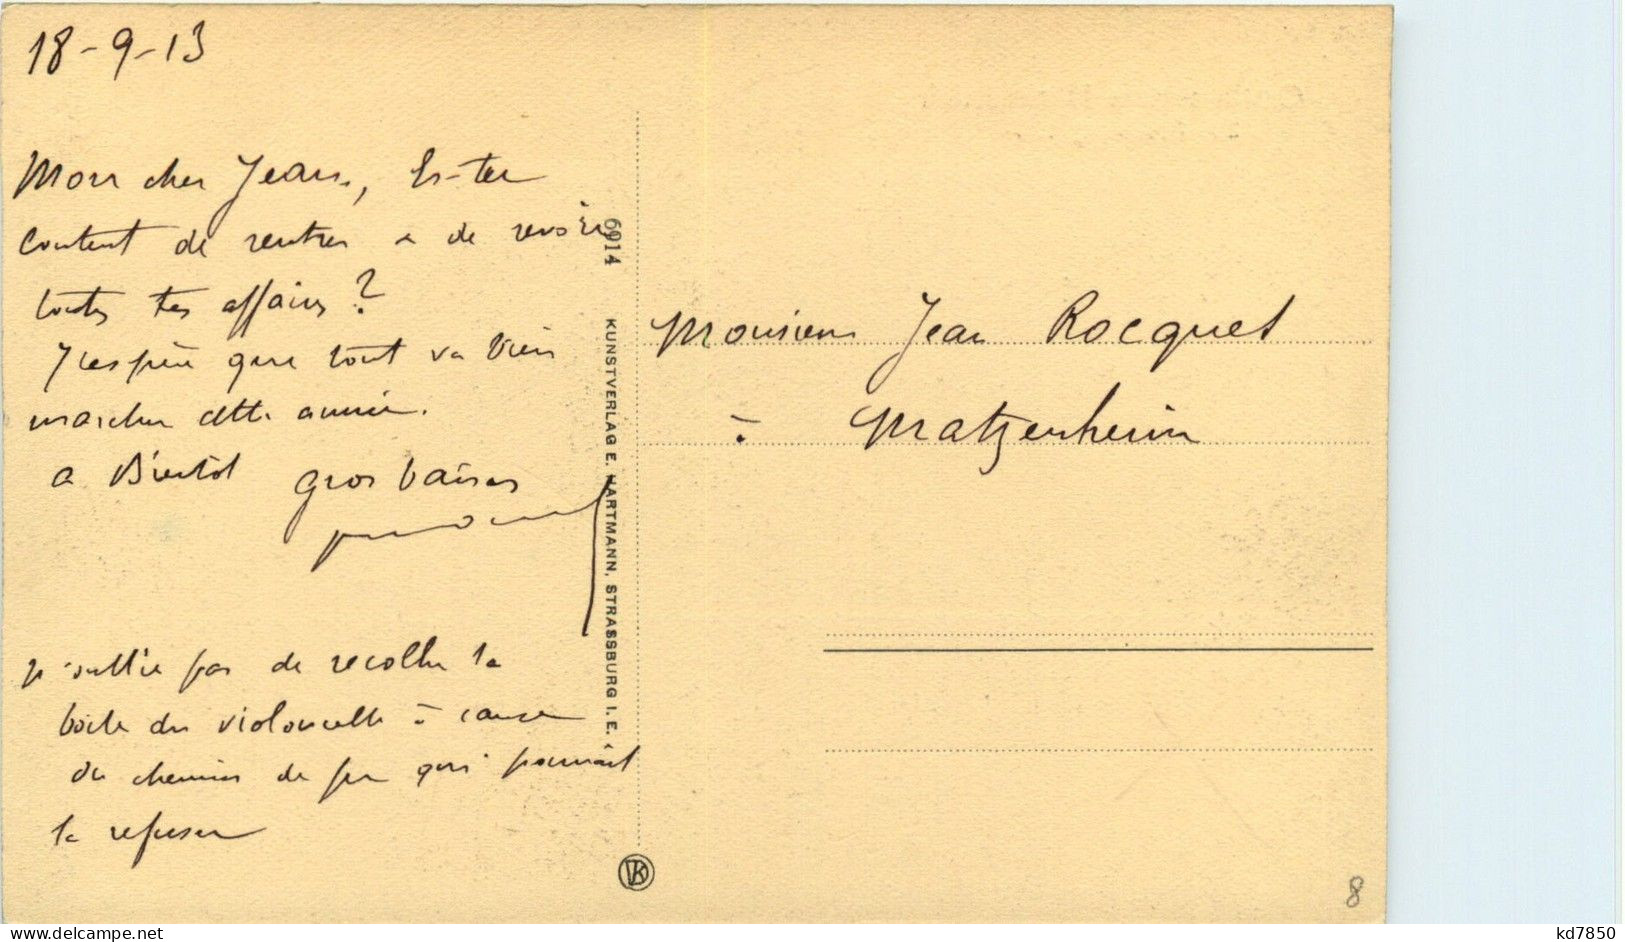 18-9-13
Mon cher Jean, Es-tu
content de rentrer & de revoir
toutes tes affaires ?
J'espère que tout va bien
marcher cette année.
a Bientôt gros baisers
n'oublie pas de recoller la
boite du violoncelle à cause
du chemin de fer qui pourrait
la refuser
6914 KUNSTVERLAG E. HARTMANN, STRASSBURG I. E.
Monsieur Jean Rocquet
à Matzenheim
8
kd7850
delcampe.net